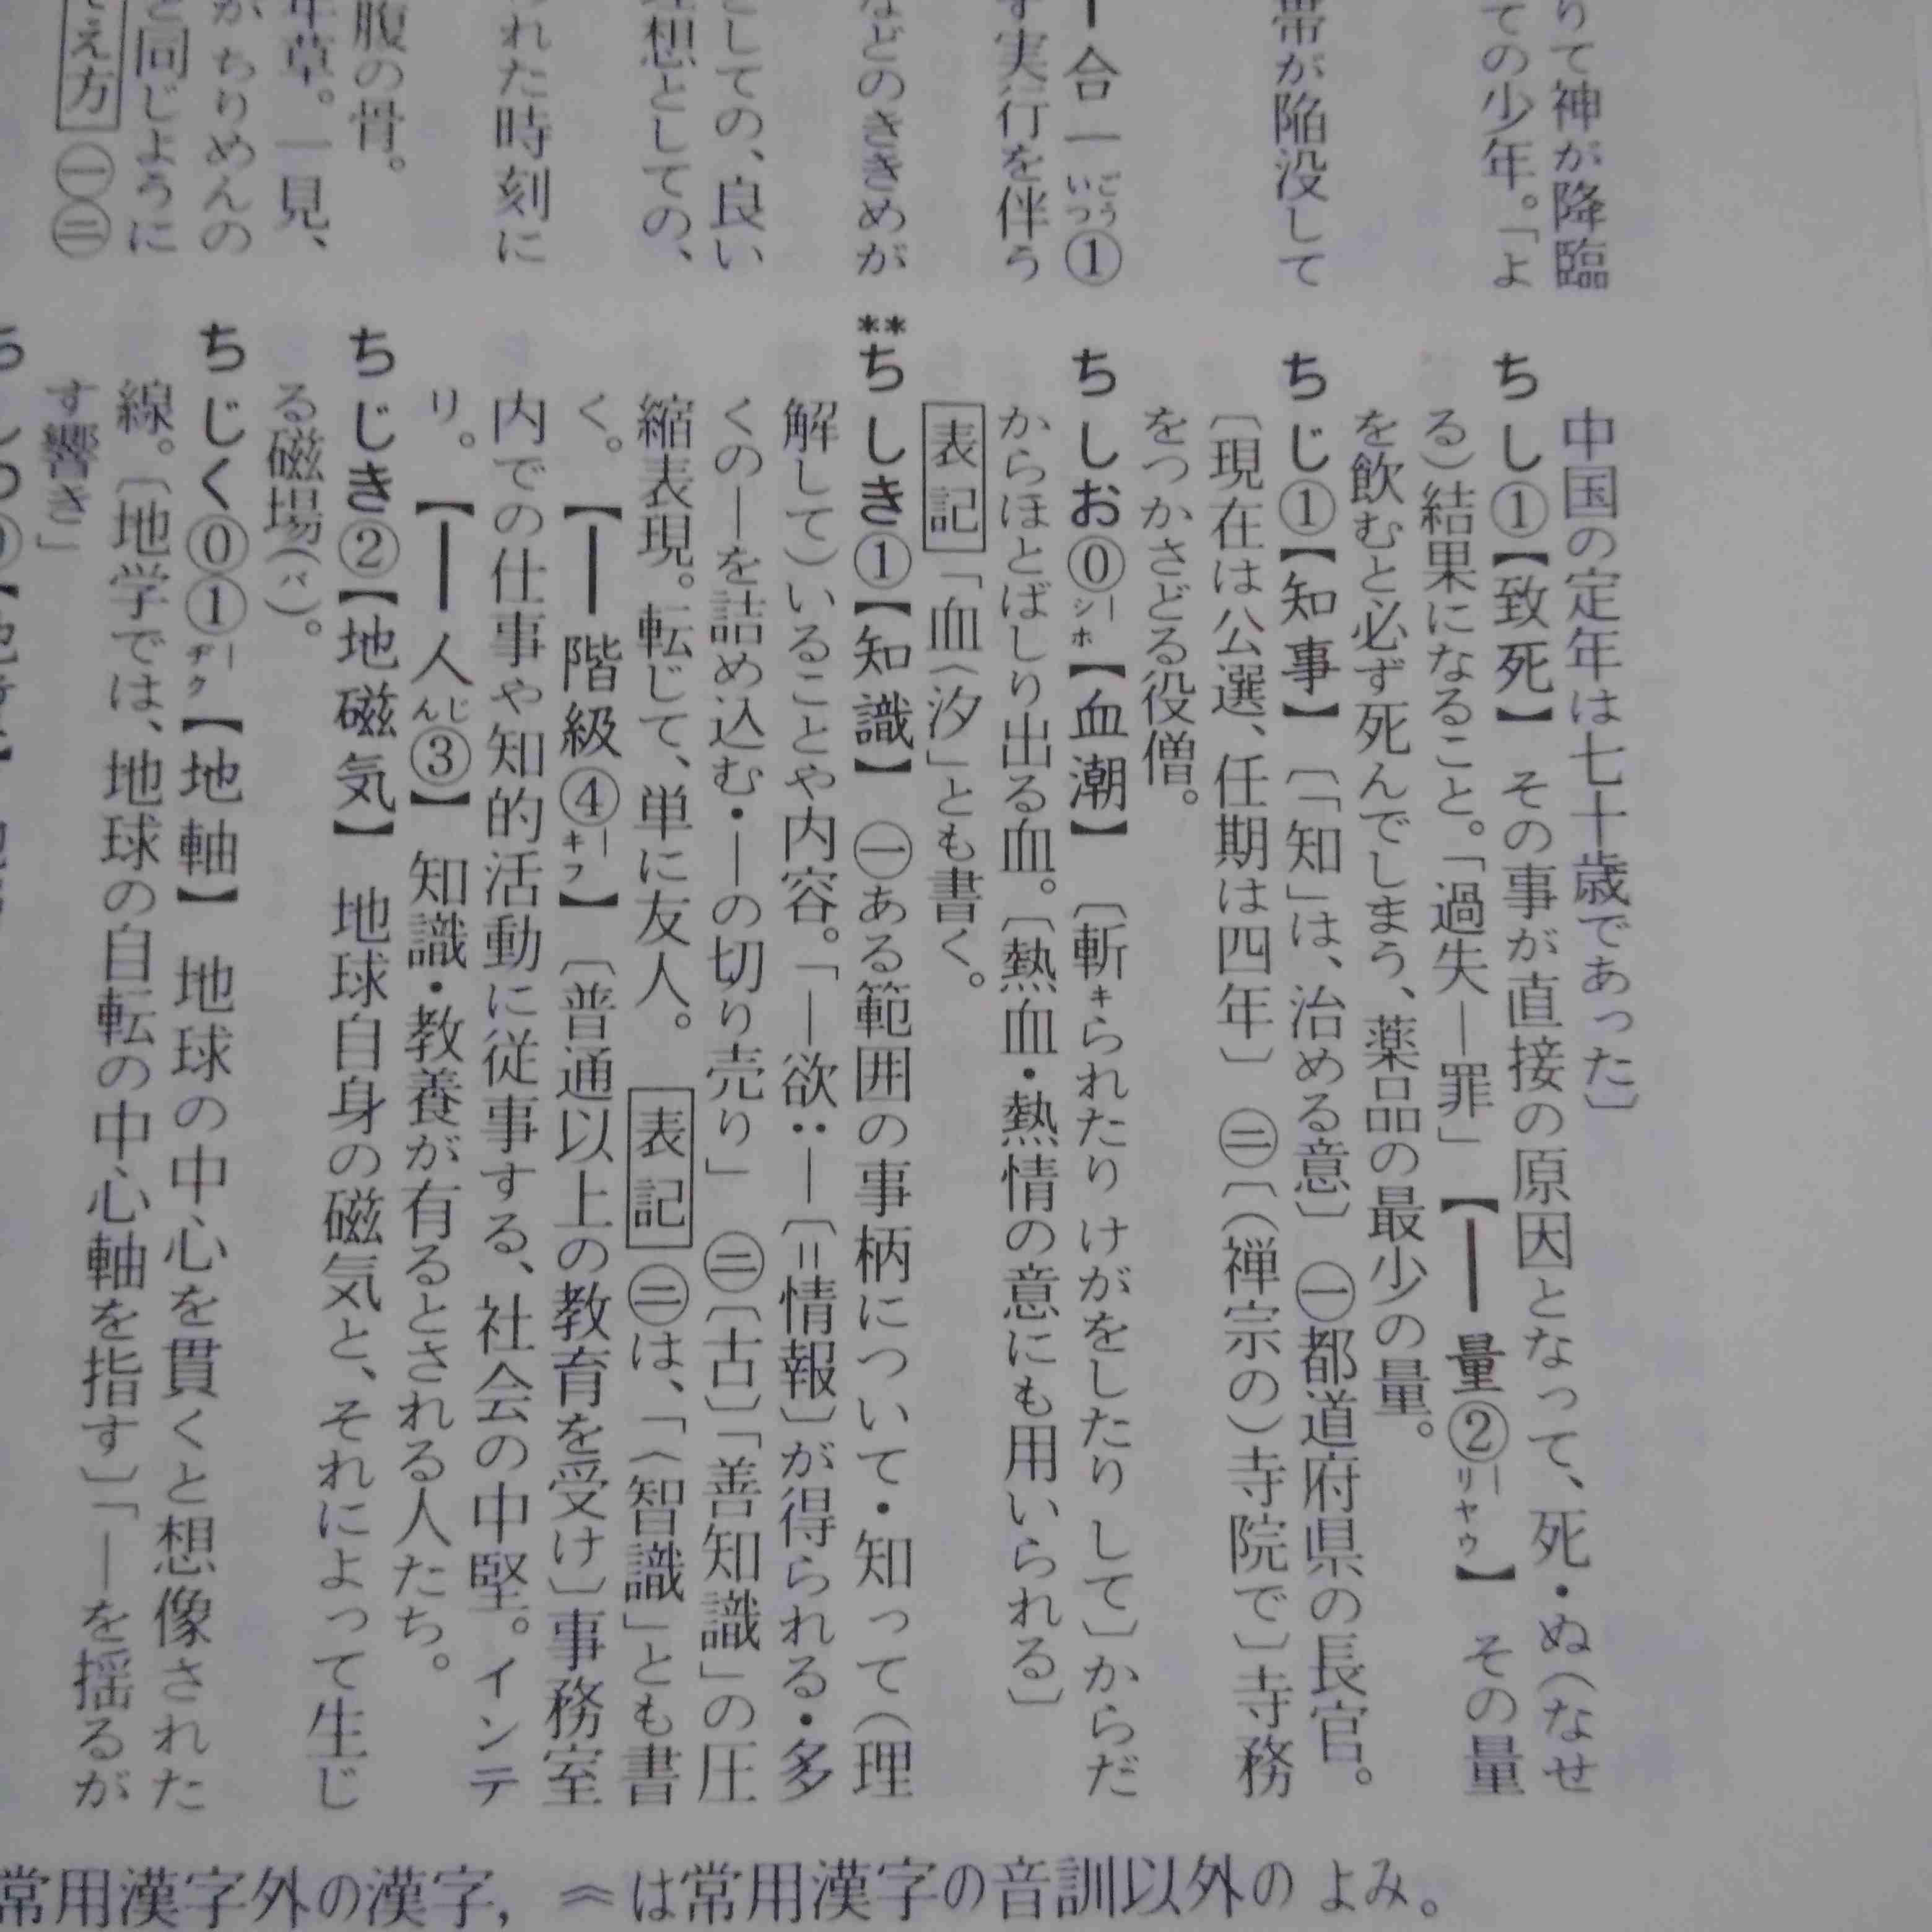 りて神が降臨
ての少年。「よ
帯が陥没して
ー合一いつごう①
実行を伴う
などのききめが
としての、良い
想としての、
れた時刻に
腹の骨。
年草。一見、
ちりめんの
同じように
え方 ㊀㊁
中国の定年は七十歳であった〕
ちし①【致死】 その事が直接の原因となって、死・ぬ(なせ
る)結果になること。「過失―罪」【━量②リヤウ】 その量
を飲むと必ず死んでしまう、薬品の最少の量。
ちじ①【知事】 〔「知」は、治める意〕 ㊀都道府県の長官。
〔現在は公選、任期は四年〕 ㊁〔(禅宗の)寺院で〕寺務
をつかさどる役僧。
ちしお⓪シホ【血潮】 〔斬キられたり けがをしたり して〕からだ
からほとばしり出る血。〔熱血・熱情の意にも用いられる〕
表記「血︽汐」とも書く。
**ちしき①【知識】 ㊀ある範囲の事柄について・知って(理
解して)いることや内容。「―欲:―〔=情報〕が得られる・多
くの―を詰め込む・―の切り売り」 ㊁〔古〕「善知識」の圧
縮表現。転じて、単に友人。 表記 ㊁は、「︽智識」とも書
く。 【━階級④キフ】 〔普通以上の教育を受け〕事務室
内での仕事や知的活動に従事する、社会の中堅。インテ
リ。 【━人じん③】 知識・教養が有るとされる人たち。
ちじき②【地磁気】 地球自身の磁気と、それによって生じ
る磁場(バ)。
ちじく⓪①ヂク【地軸】 地球の中心を貫くと想像された
線。〔地学では、地球の自転の中心軸を指す〕「―を揺るが
す響き」
常用漢字外の漢字, ︽は常用漢字の音訓以外のよみ。